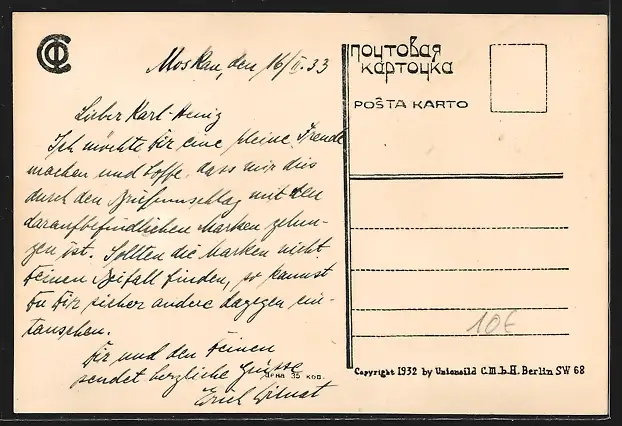 Moskau, den 16/II.33
Lieber Karl-Heinz
Ich möchte Dir eine kleine Freude
machen und hoffe, dass mir dies
durch den Briefumschlag mit den
daraufbefindlichen Marken gelun-
gen ist. Sollten die Marken nicht
Deinen Beifall finden, so kannst
Du Dir sicher andere dagegen ein-
tauschen.
Dir und den Deinen
sendet herzliche Grüsse
Erich
почтовая
карточка
POŜTA KARTO
10€
Цена 35 коп.
Copyright 1932 by Unionbild G.m.b.H. Berlin SW 68